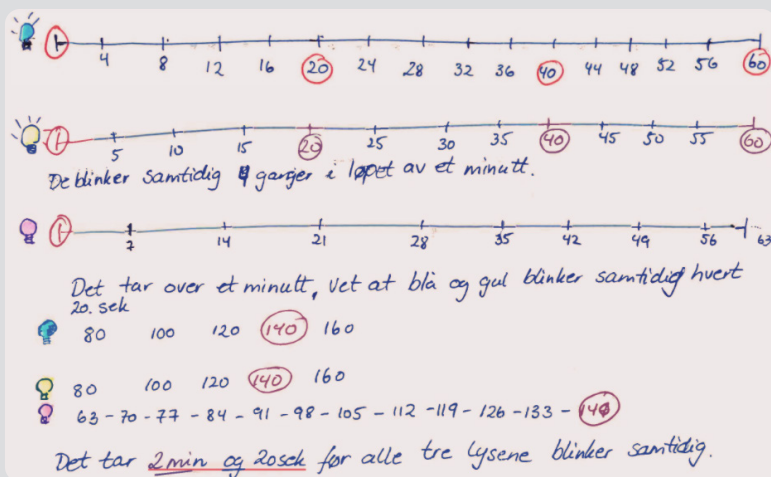 4 8 12 16 20 24 28 32 36 40 44 48 52 56 60
5 10 15 20 25 30 35 40 45 50 55 60
De blinker samtidig 4 ganger i løpet av et minutt.
7 14 21 28 35 42 49 56 63
Det tar over et minutt, vet at blå og gul blinker samtidig hvert
20. sek
80 100 120 140 160
80 100 120 140 160
63 - 70 - 77 - 84 - 91 - 98 - 105 - 112 - 119 - 126 - 133 - 140
Det tar 2 min og 20 sek før alle tre lysene blinker samtidig.